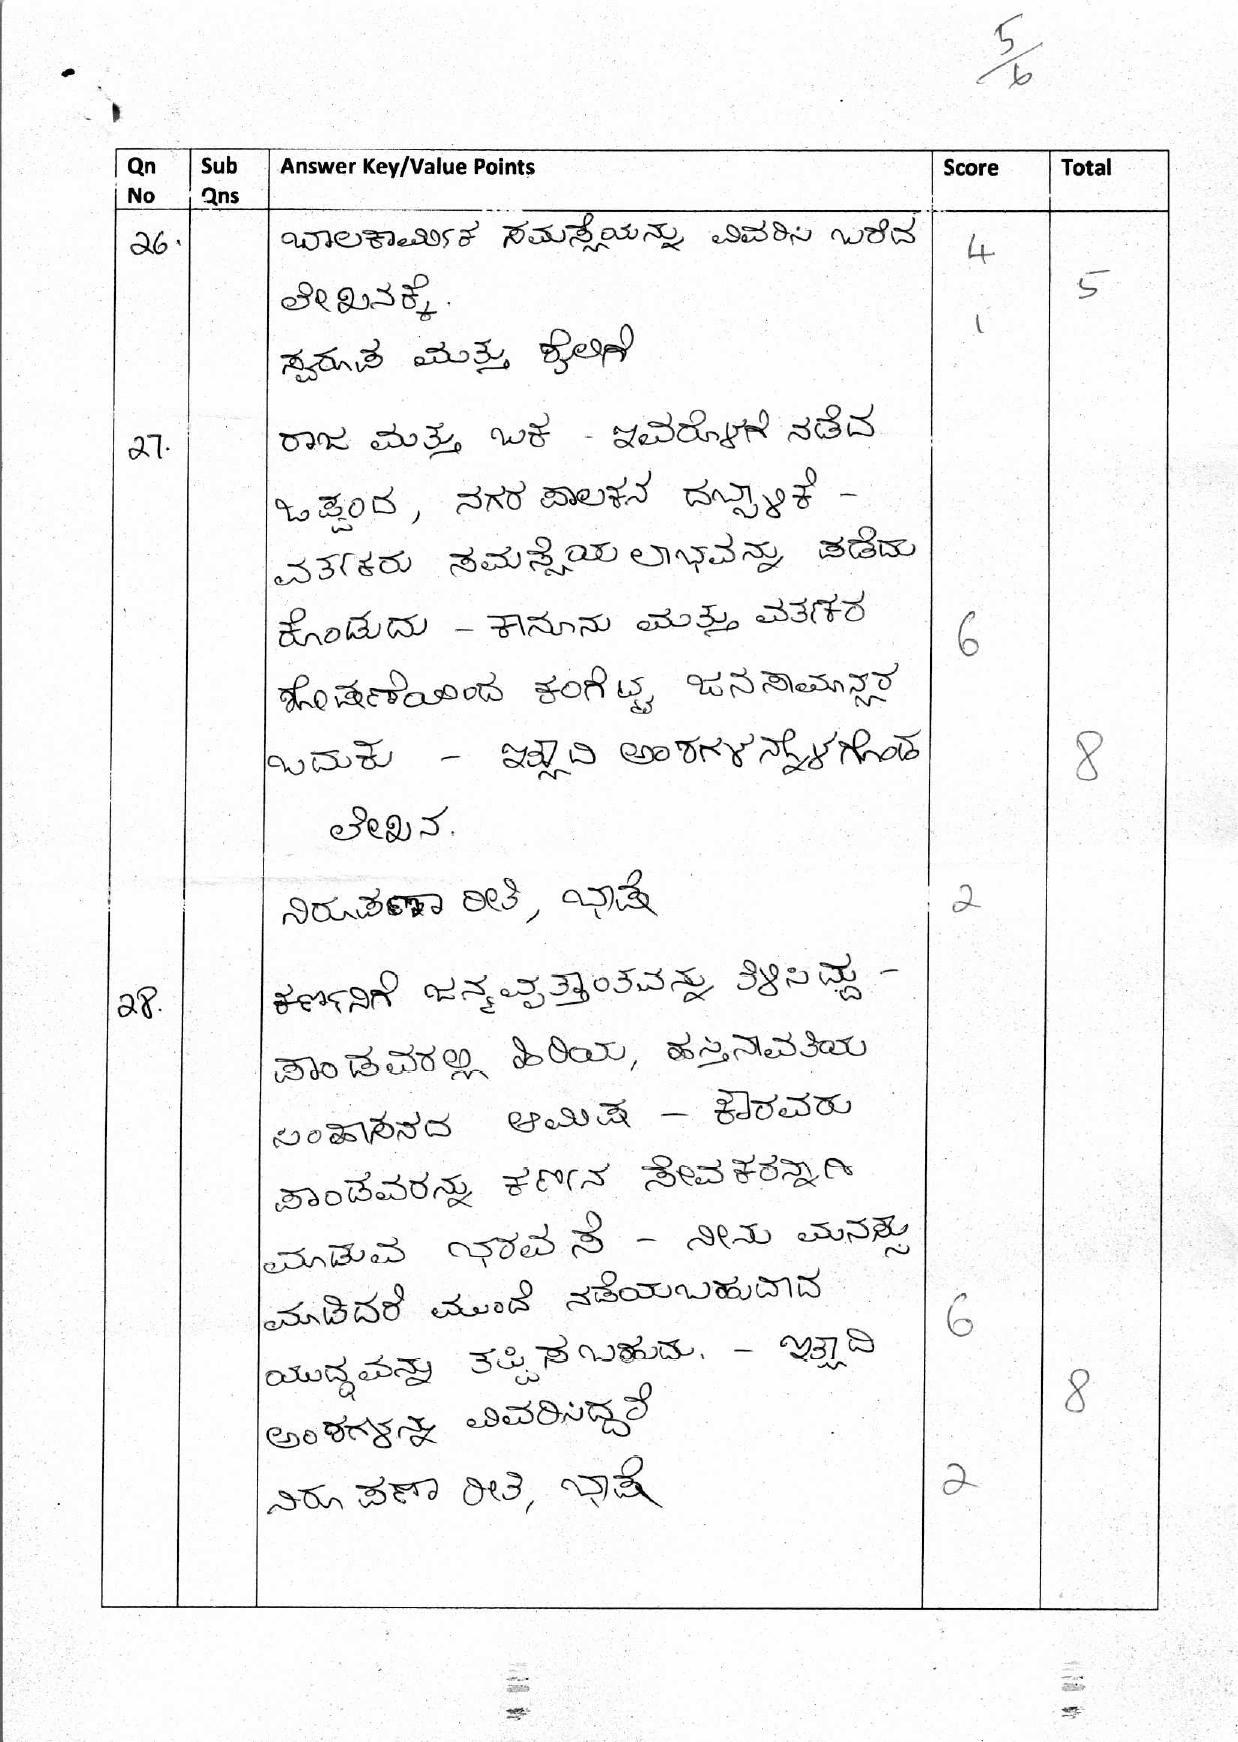 5/6
Qn No Sub Qns Answer Key/Value Points Score Total
26. ಬಾಲಕಾರ್ಮಿಕ ಸಮಸ್ಯೆಯನ್ನು ವಿವರಿಸಿ ಬರೆದ 4
ಲೇಖನಕ್ಕೆ. 5
ಸ್ವರೂಪ ಮತ್ತು ಶೈಲಿಗೆ 1
27. ರಾಜ ಮತ್ತು ಬಕ - ಇವರೊಳಗೆ ನಡೆದ
ಒಪ್ಪಂದ, ನಗರ ಪಾಲಕನ ದಬ್ಬಾಳಿಕೆ -
ವರ್ತಕರು ಸಮಸ್ಯೆಯ ಲಾಭವನ್ನು ಪಡೆದು
ಕೊಂಡುದು - ಕಾನೂನು ಮತ್ತು ವರ್ತಕರ 6
ಶೋಷಣೆಯಿಂದ ಕಂಗೆಟ್ಟ ಜನಸಾಮಾನ್ಯರ
ಬದುಕು - ಇತ್ಯಾದಿ ಅಂಶಗಳನ್ನೊಳಗೊಂಡ 8
ಲೇಖನ.
ನಿರೂಪಣಾ ರೀತಿ, ಭಾಷೆ 2
28. ಕರ್ಣನಿಗೆ ಜನ್ಮವೃತ್ತಾಂತವನ್ನು ತಿಳಿಸಿದ್ದು -
ಪಾಂಡವರಲ್ಲಿ ಹಿರಿಯ, ಹಸ್ತಿನಾವತಿಯ
ಸಿಂಹಾಸನದ ಆಮಿಷ - ಕೌರವರು
ಪಾಂಡವರನ್ನು ಕರ್ಣನ ಸೇವಕರನ್ನಾಗಿ
ಮಾಡುವ ಭರವಸೆ - ನೀನು ಮನಸ್ಸು
ಮಾಡಿದರೆ ಮುಂದೆ ನಡೆಯಬಹುದಾದ 6
ಯುದ್ಧವನ್ನು ತಪ್ಪಿಸಬಹುದು. - ಇತ್ಯಾದಿ
ಅಂಶಗಳನ್ನು ವಿವರಿಸಿದ್ದರೆ 8
ನಿರೂಪಣಾ ರೀತಿ, ಭಾಷೆ 2